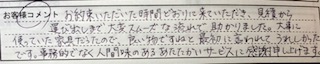 お客様コメント お約束いただいた時間どおりに来ていただき、見積から
運び出しまで大変スムーズな流れで助かりました。大事に
使っていた家具だったので、良い物ですねと最初に言われてうれしかった
です。事務的でなく人間味のあるあたたかいサービスに感謝申し上げます。